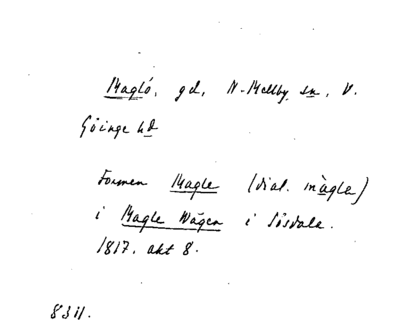 Magló, gd, N. Mellby sn, V.
Göinge hd
Formen Magle (dial. màgla)
i Magle Wägen i Sösdala.
1817. akt 8.
8311.